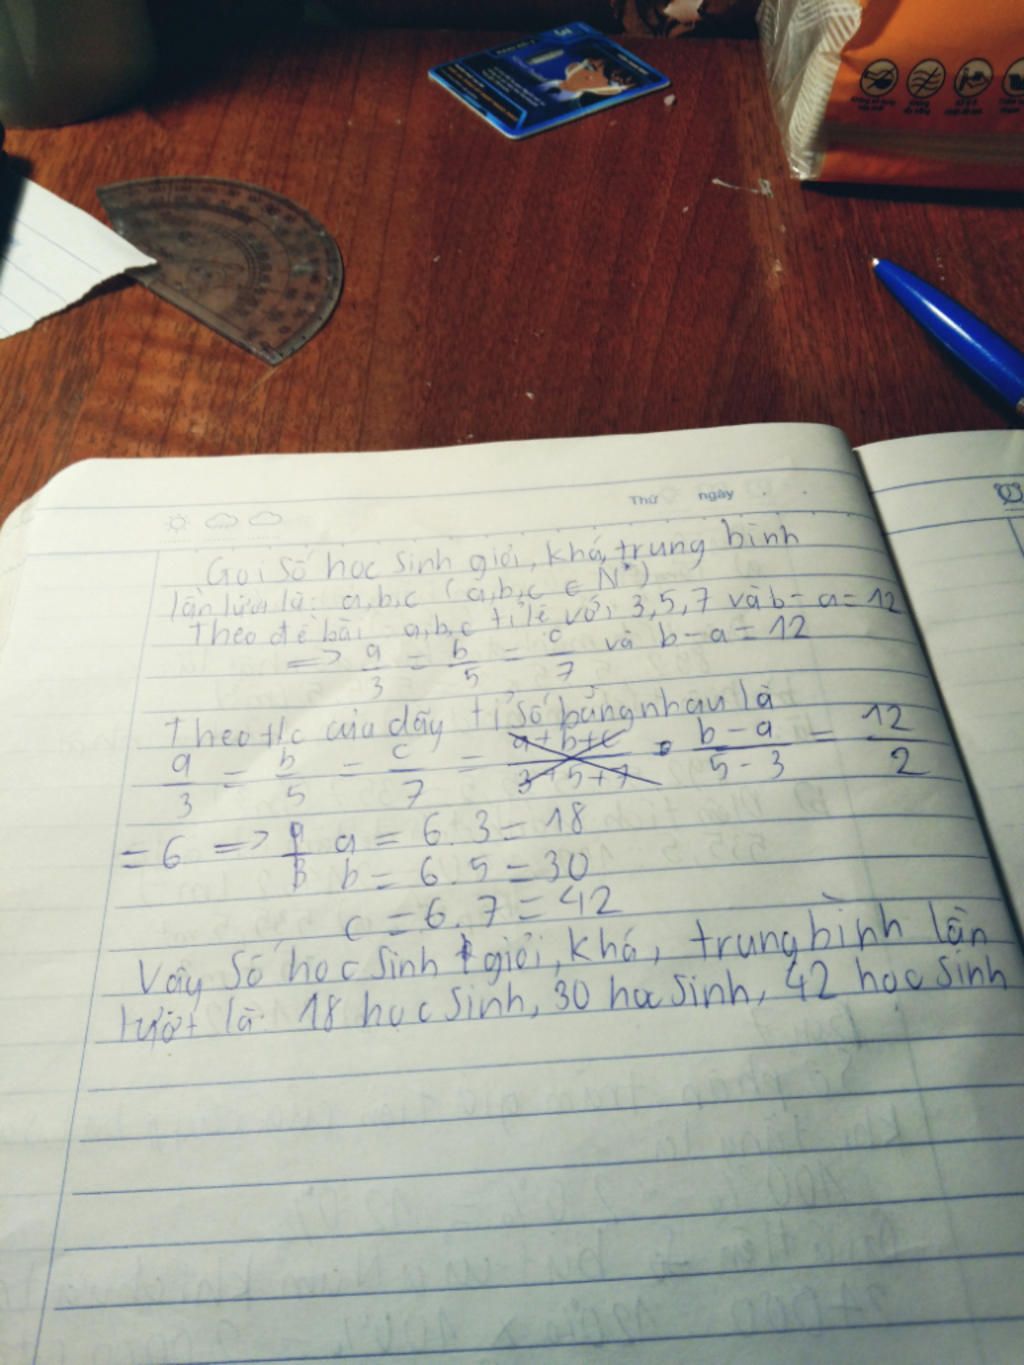 Thứ ngày
Gọi số học sinh giỏi, khá, trung bình
lần lượt là: a,b,c (a,b,c ∈ N*)
Theo đề bài: a,b,c tỉ lệ với 3,5,7 và b-a=12
=> a/3 = b/5 = c/7 và b-a=12
Theo t/c của dãy tỉ số bằng nhau là
a/3 = b/5 = c/7 = a+b+c/3+5+7 = b-a/5-3 = 12/2
= 6 => a = 6.3=18
b = 6.5=30
c = 6.7=42
Vây số học sinh giỏi, khá, trung bình lần
lượt là: 18 học sinh, 30 học sinh, 42 học sinh